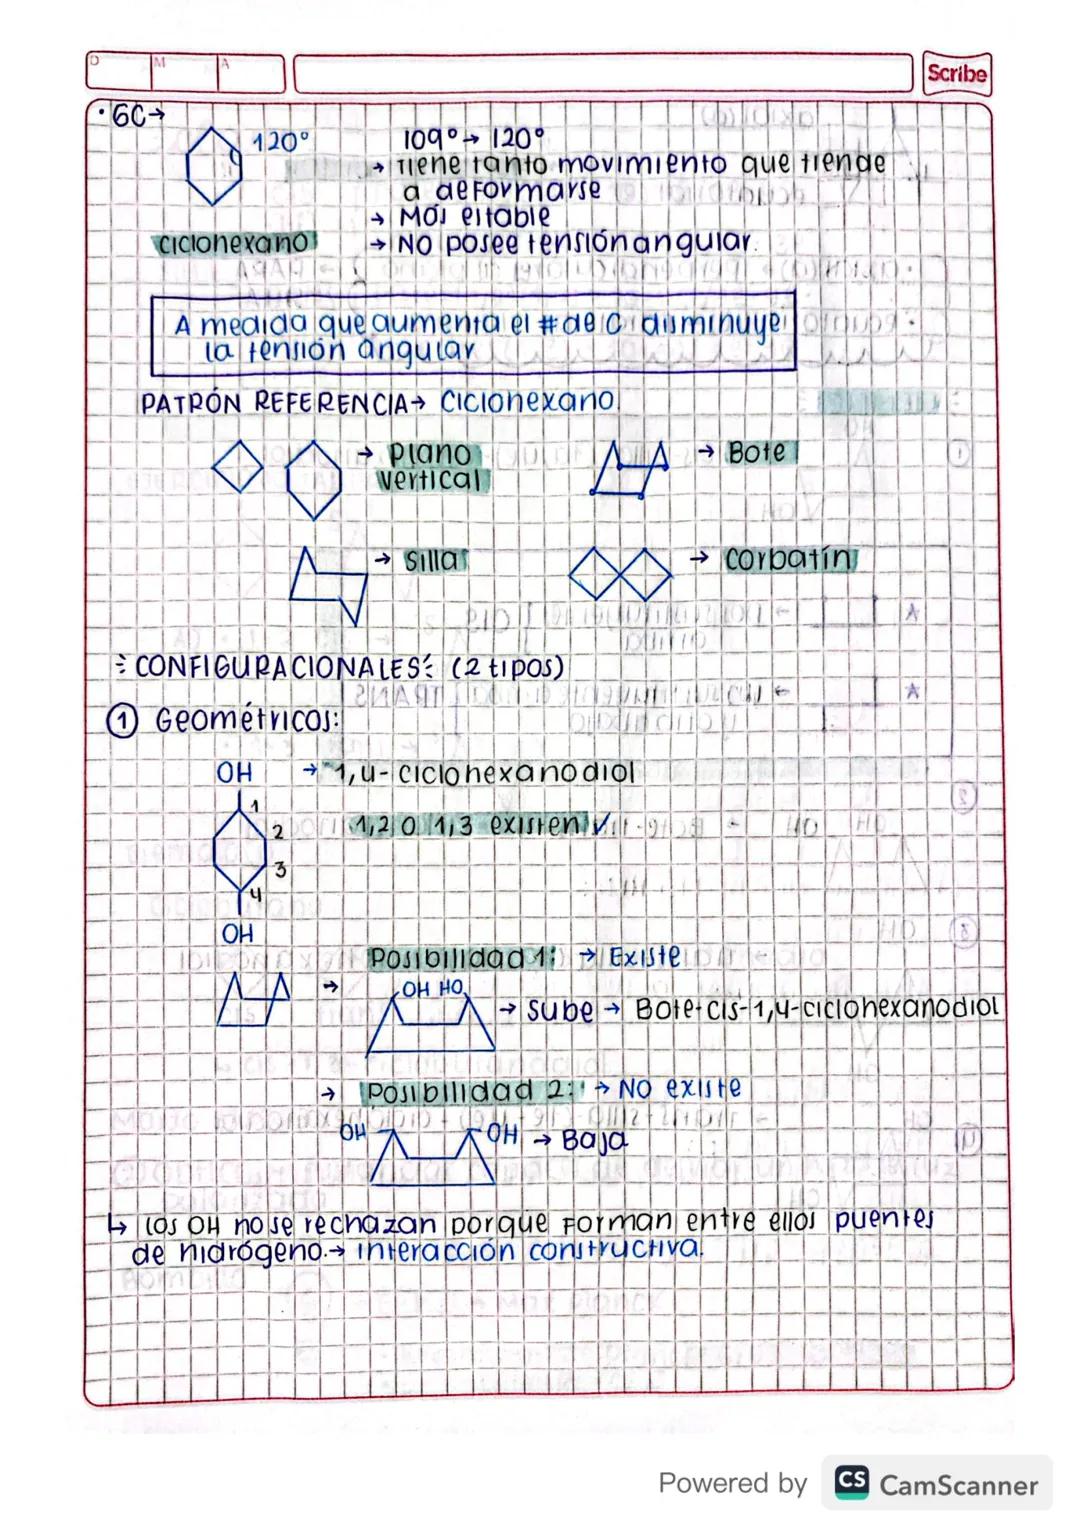 D M A
Scribe
• 6C→
120°
109° → 120°
→ Tiene tanto movimiento que tiende
a deformarse
→ Más estable
ciclohexano
→ No posee tensión angular.
A medida que aumenta el # de C disminuye
la tensión angular
PATRÓN REFERENCIA → Ciclohexano
→ Plano
vertical
→ Bote
→ Silla
→ Corbatín
CONFIGURACIONALES: (2 tipos)
① Geométricos:
OH
→ 1,4-ciclohexanodiol
1
2
1,2 o 1,3 existen ✓
3
4
OH
Posibilidad 1: → Existe
→
OH HO
→ Sube → Bote-cis-1,4-ciclohexanodiol
→ Posibilidad 2: → NO existe
OH
OH → Baja
↳ los OH no se rechazan porque forman entre ellos puentes
de hidrógeno. → interacción constructiva.
Powered by CS CamScanner